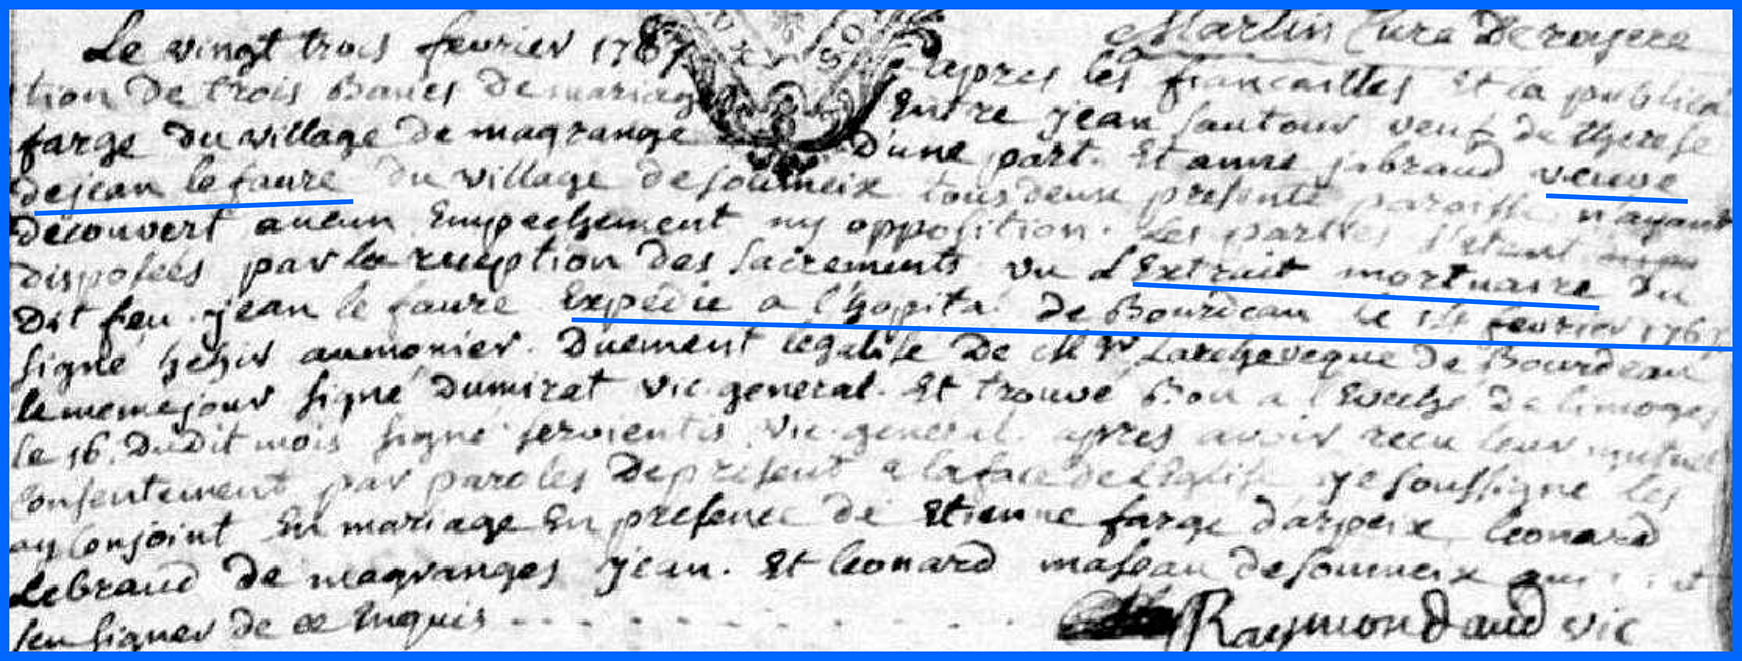 Martin Cure De royere
Le vingt trois fevrier 1767 apres les fiancailles Et la publica
tion De trois Bancs De mariage Entre jean Sautour veuf de therese
farge Du village De magrange D'une part. Et anne jabraud veuve
de jean le faure Du village de soumeix tous deux presente paroisse n'ayant
decouvert aucun Empechement ny opposition. Les parties s'etant
disposées par la reception Des Sacrements vu L'Extrait mortuaire du
Dit feu jean le faure Expedie a l'hopital De Bourdeau le fevrier 1767
signé aumonier. Duement legalise De Mgr Larcheveque de Bourdeau
le meme jour signé Dumirat vic. general. Et trouvé Bon a l'Eveché De limoges
le 16. Dudit mois signé servientis vic. general. apres avoir recu leur mutuel
Consentement par paroles De present a la face de l'Eglise je soussigne les
ay Conjoint En mariage En presence de Etienne farge d'arpeix, leonard
Lebraud de magranges jean. Et leonard maseau de soumeix qui
sen signer de ce Enquis - - - - - - - - Raymondaud vic